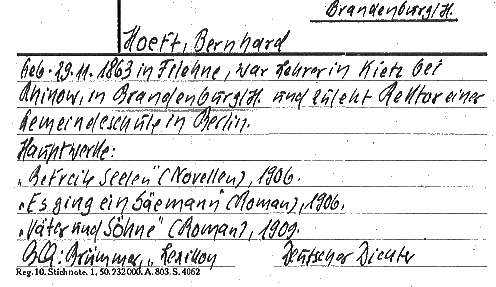 Brandenburg/H.
Hoeft, Bernhard
geb. 29.11.1863 in Filehne, war Lehrer in Kietz bei
Rhinow, in Brandenburg/H. und zuletzt Rektor einer
Gemeindeschule in Berlin.
Hauptwerke:
„Befreite Seelen" (Novellen), 1906.
„Es ging ein Säemann" (Roman), 1906.
„Väter und Söhne" (Roman), 1909.
BQ: Brümmer, „Lexikon Deutscher Dichter
Reg. 10. Stichnote. 1, 50. 232000. A. 803. S. 4062